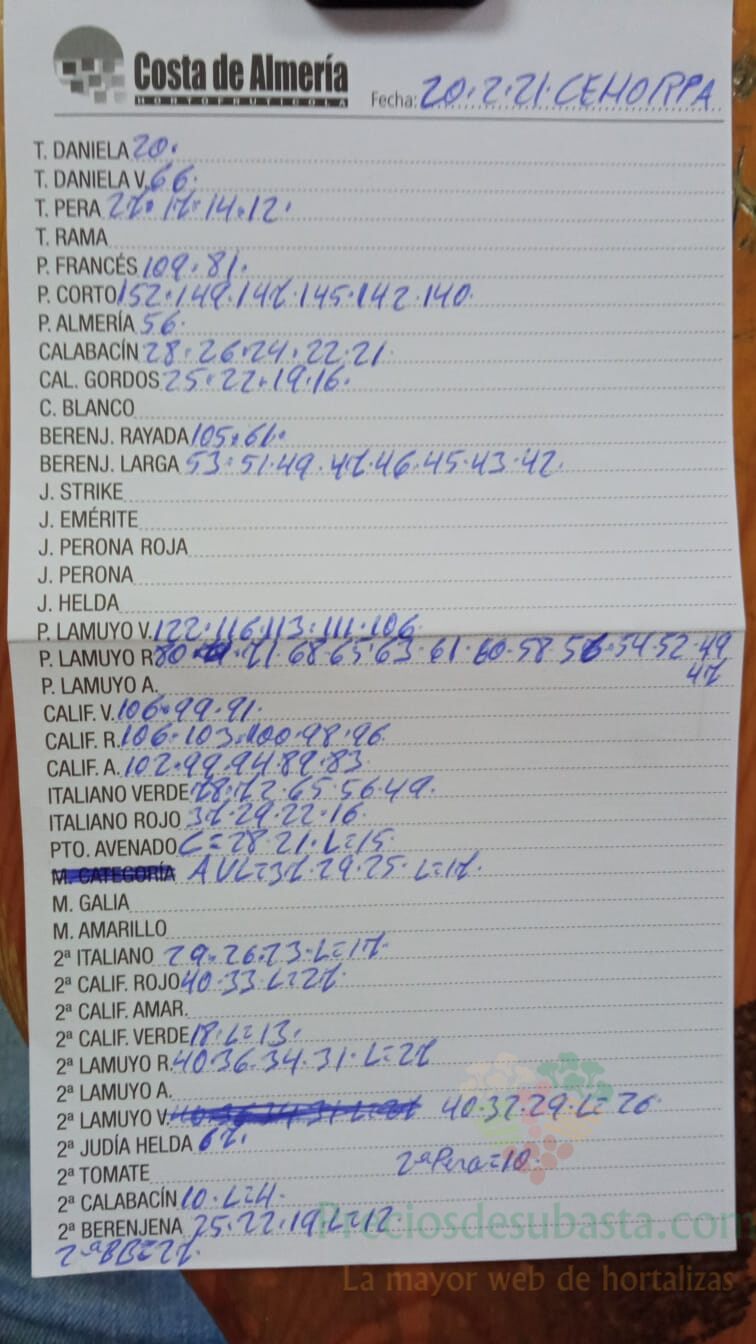 Costa de Almería
HORTOFRUTICOLA
Fecha: 20.2.21.CEHORPA
T. DANIELA 20.
T. DANIELA V. 66.
T. PERA 27.17.14.12.
T. RAMA
P. FRANCÉS 109.81.
P. CORTO 152.149.147.145.142.140.
P. ALMERÍA 56.
CALABACÍN 28.26.24.22.21.
CAL. GORDOS 25.22.19.16.
C. BLANCO
BERENJ. RAYADA 105.61.
BERENJ. LARGA 53.51.49.47.46.45.43.42.
J. STRIKE
J. EMÉRITE
J. PERONA ROJA
J. PERONA
J. HELDA
P. LAMUYO V. 122.116.113.111.106.
P. LAMUYO R. 80.71.68.65.63.61.60.58.56.54.52.49
47
P. LAMUYO A.
CALIF. V. 106.99.91.
CALIF. R. 106.103.100.98.96
CALIF. A. 102.99.94.89.83.
ITALIANO VERDE 78.72.65.56.49.
ITALIANO ROJO 37.29.22.16.
PTO. AVENADO C=28.21.L=15.
M. CATEGORÍA AVL=37.29.25.L=17.
M. GALIA
M. AMARILLO
2ª ITALIANO 29.26.23.L=17.
2ª CALIF. ROJO 40.33.L=27.
2ª CALIF. AMAR.
2ª CALIF. VERDE 18.L=13.
2ª LAMUYO R. 40.36.34.31.L=27
2ª LAMUYO A.
2ª LAMUYO V. 40.36.34.31.L=27 40.37.29.L=26.
2ª JUDÍA HELDA 67.
2ª TOMATE 2ªPera=10.
2ª CALABACÍN 10.L=4.
2ª BERENJENA 25.22.19.L=12.
2ªBB=27.
Preciosdesubasta.com
La mayor web de hortalizas